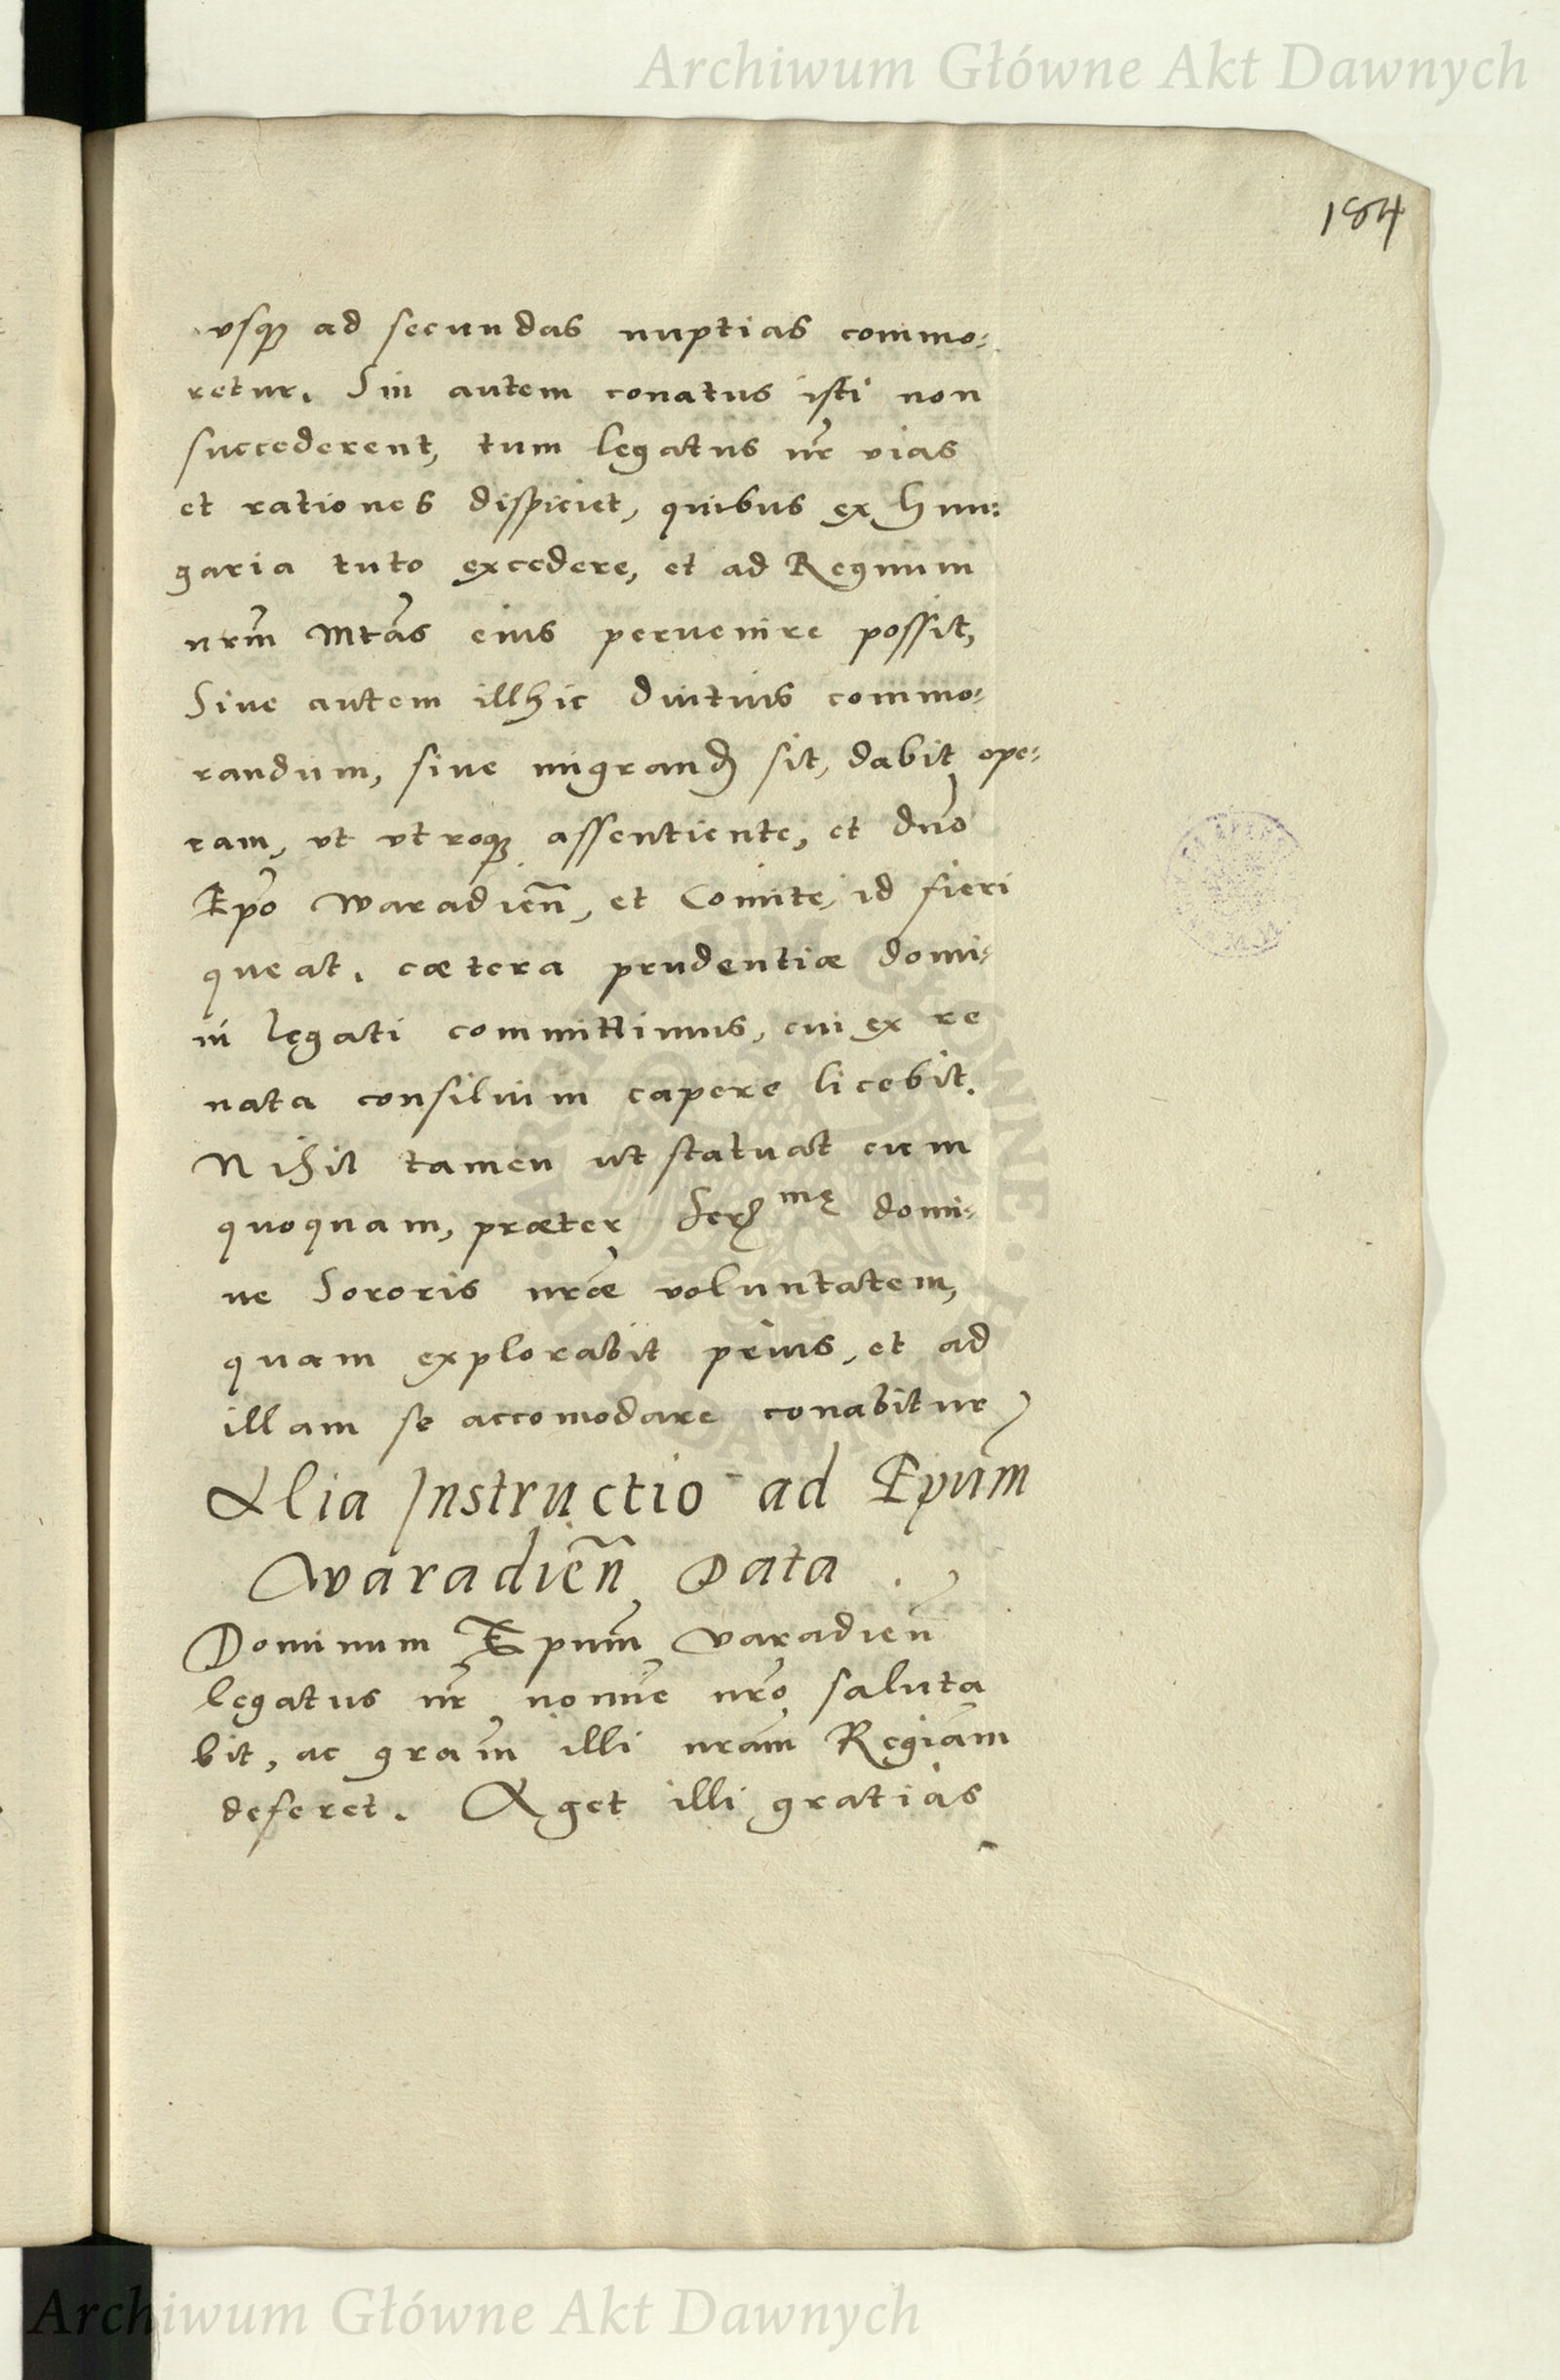 Archiwum Główne Akt Dawnych
184
vsqꝫ ad secundas nuptias commo:
retur. Sin autem conatus isti non
succederent, tum legatus nr̃ vias
et rationes dispiciet, quibus ex Hun:
garia tuto excedere, et ad Regnum
nrm̃ Mtãs eius peruenire possit,
Siue autem illhic diutius commo:
randum, siue migrand̃ sit, dabit ope:
ram, vt vtroqꝫ assentiente, et dnõ
Epõ Waradień, et Comite, id fieri
queat. cætera prudentiæ domi:
ni legati committimus, cui ex re
nata consilium capere licebit.
Nihil tamen ut statuat cum
quoquam, præter Ser̃ mę domi:
ne Sororis nræ̃ voluntatem,
quam explorabit prius, et ad
illam se accomodare conabitur
Alia Instructio ad Epum̃
Waradień Data
Dominum Epum̃ Varadień
legatus nr̃ nomĩe nrõ saluta
bit, ac gram̃ illi nrãm Regiam
deferet. Aget illi gratias
Archiwum Główne Akt Dawnych